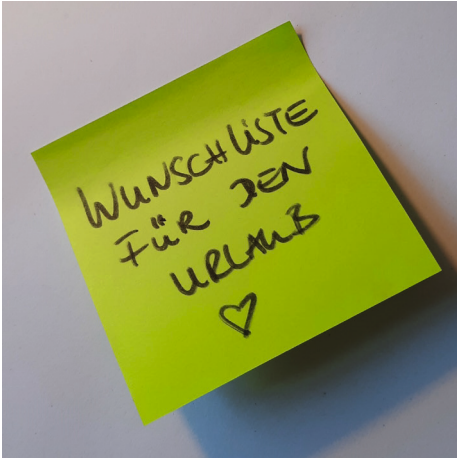 WUNSCHLISTE
FÜR DEN
URLAUB
♡